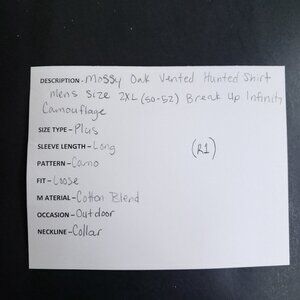 DESCRIPTION - Mossy Oak Vented Hunted Shirt
mens Size 2XL (50-52) Break Up Infinity
Camouflage
SIZE TYPE - Plus
SLEEVE LENGTH - Long
(R1)
PATTERN - Camo
FIT - Loose
MATERIAL - Cotton Blend
OCCASION - Outdoor
NECKLINE - Collar